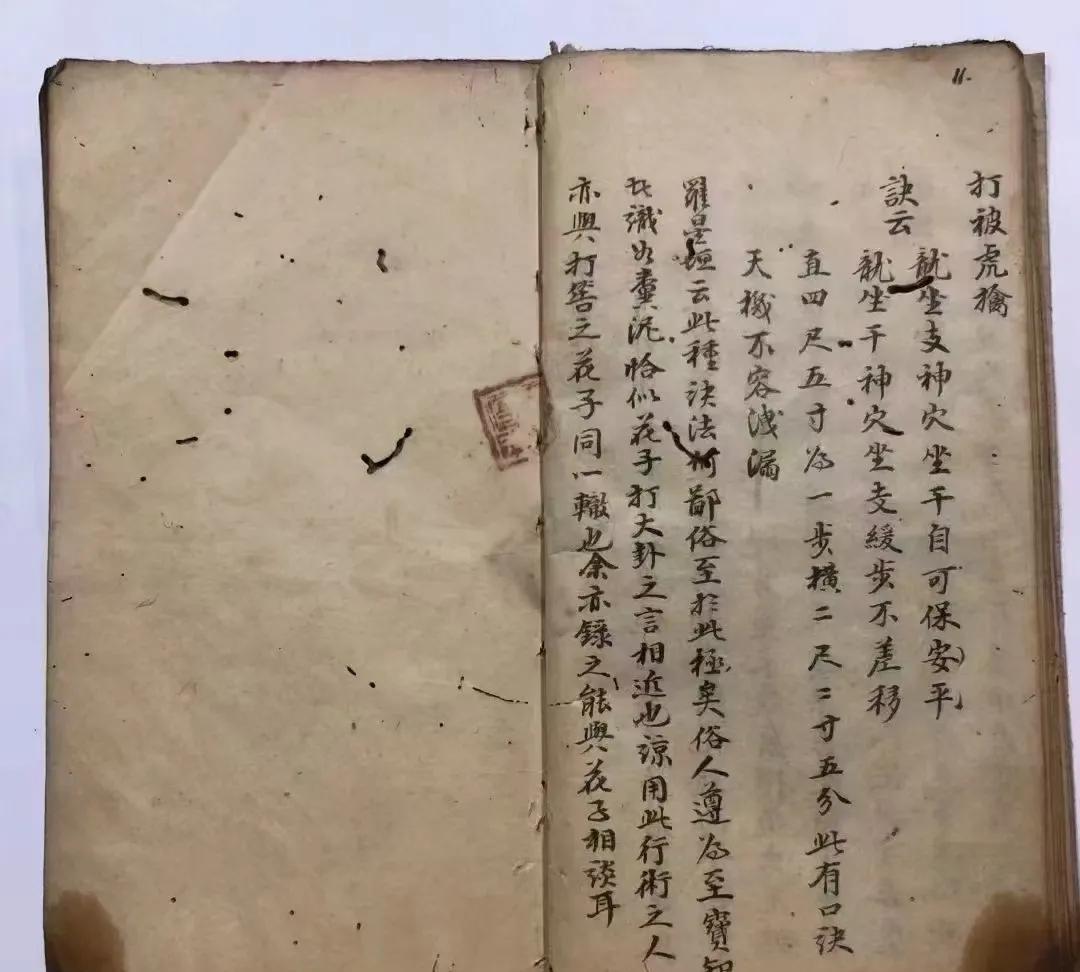 11.
打被虎擒
訣云
龍坐支神穴坐干自可保安平
龍坐干神穴坐支緩步不差移
直四尺五寸為一步橫二尺二寸五分此有口訣
天機不容洩漏
羅星垣云此種訣法何鄙俗至於此極矣俗人遵為至寶知
此識如糞泥恰似花子打大卦之言相近也諒用此行術之人
亦與打筶之花子同一轍也余亦錄之能與花子相談耳